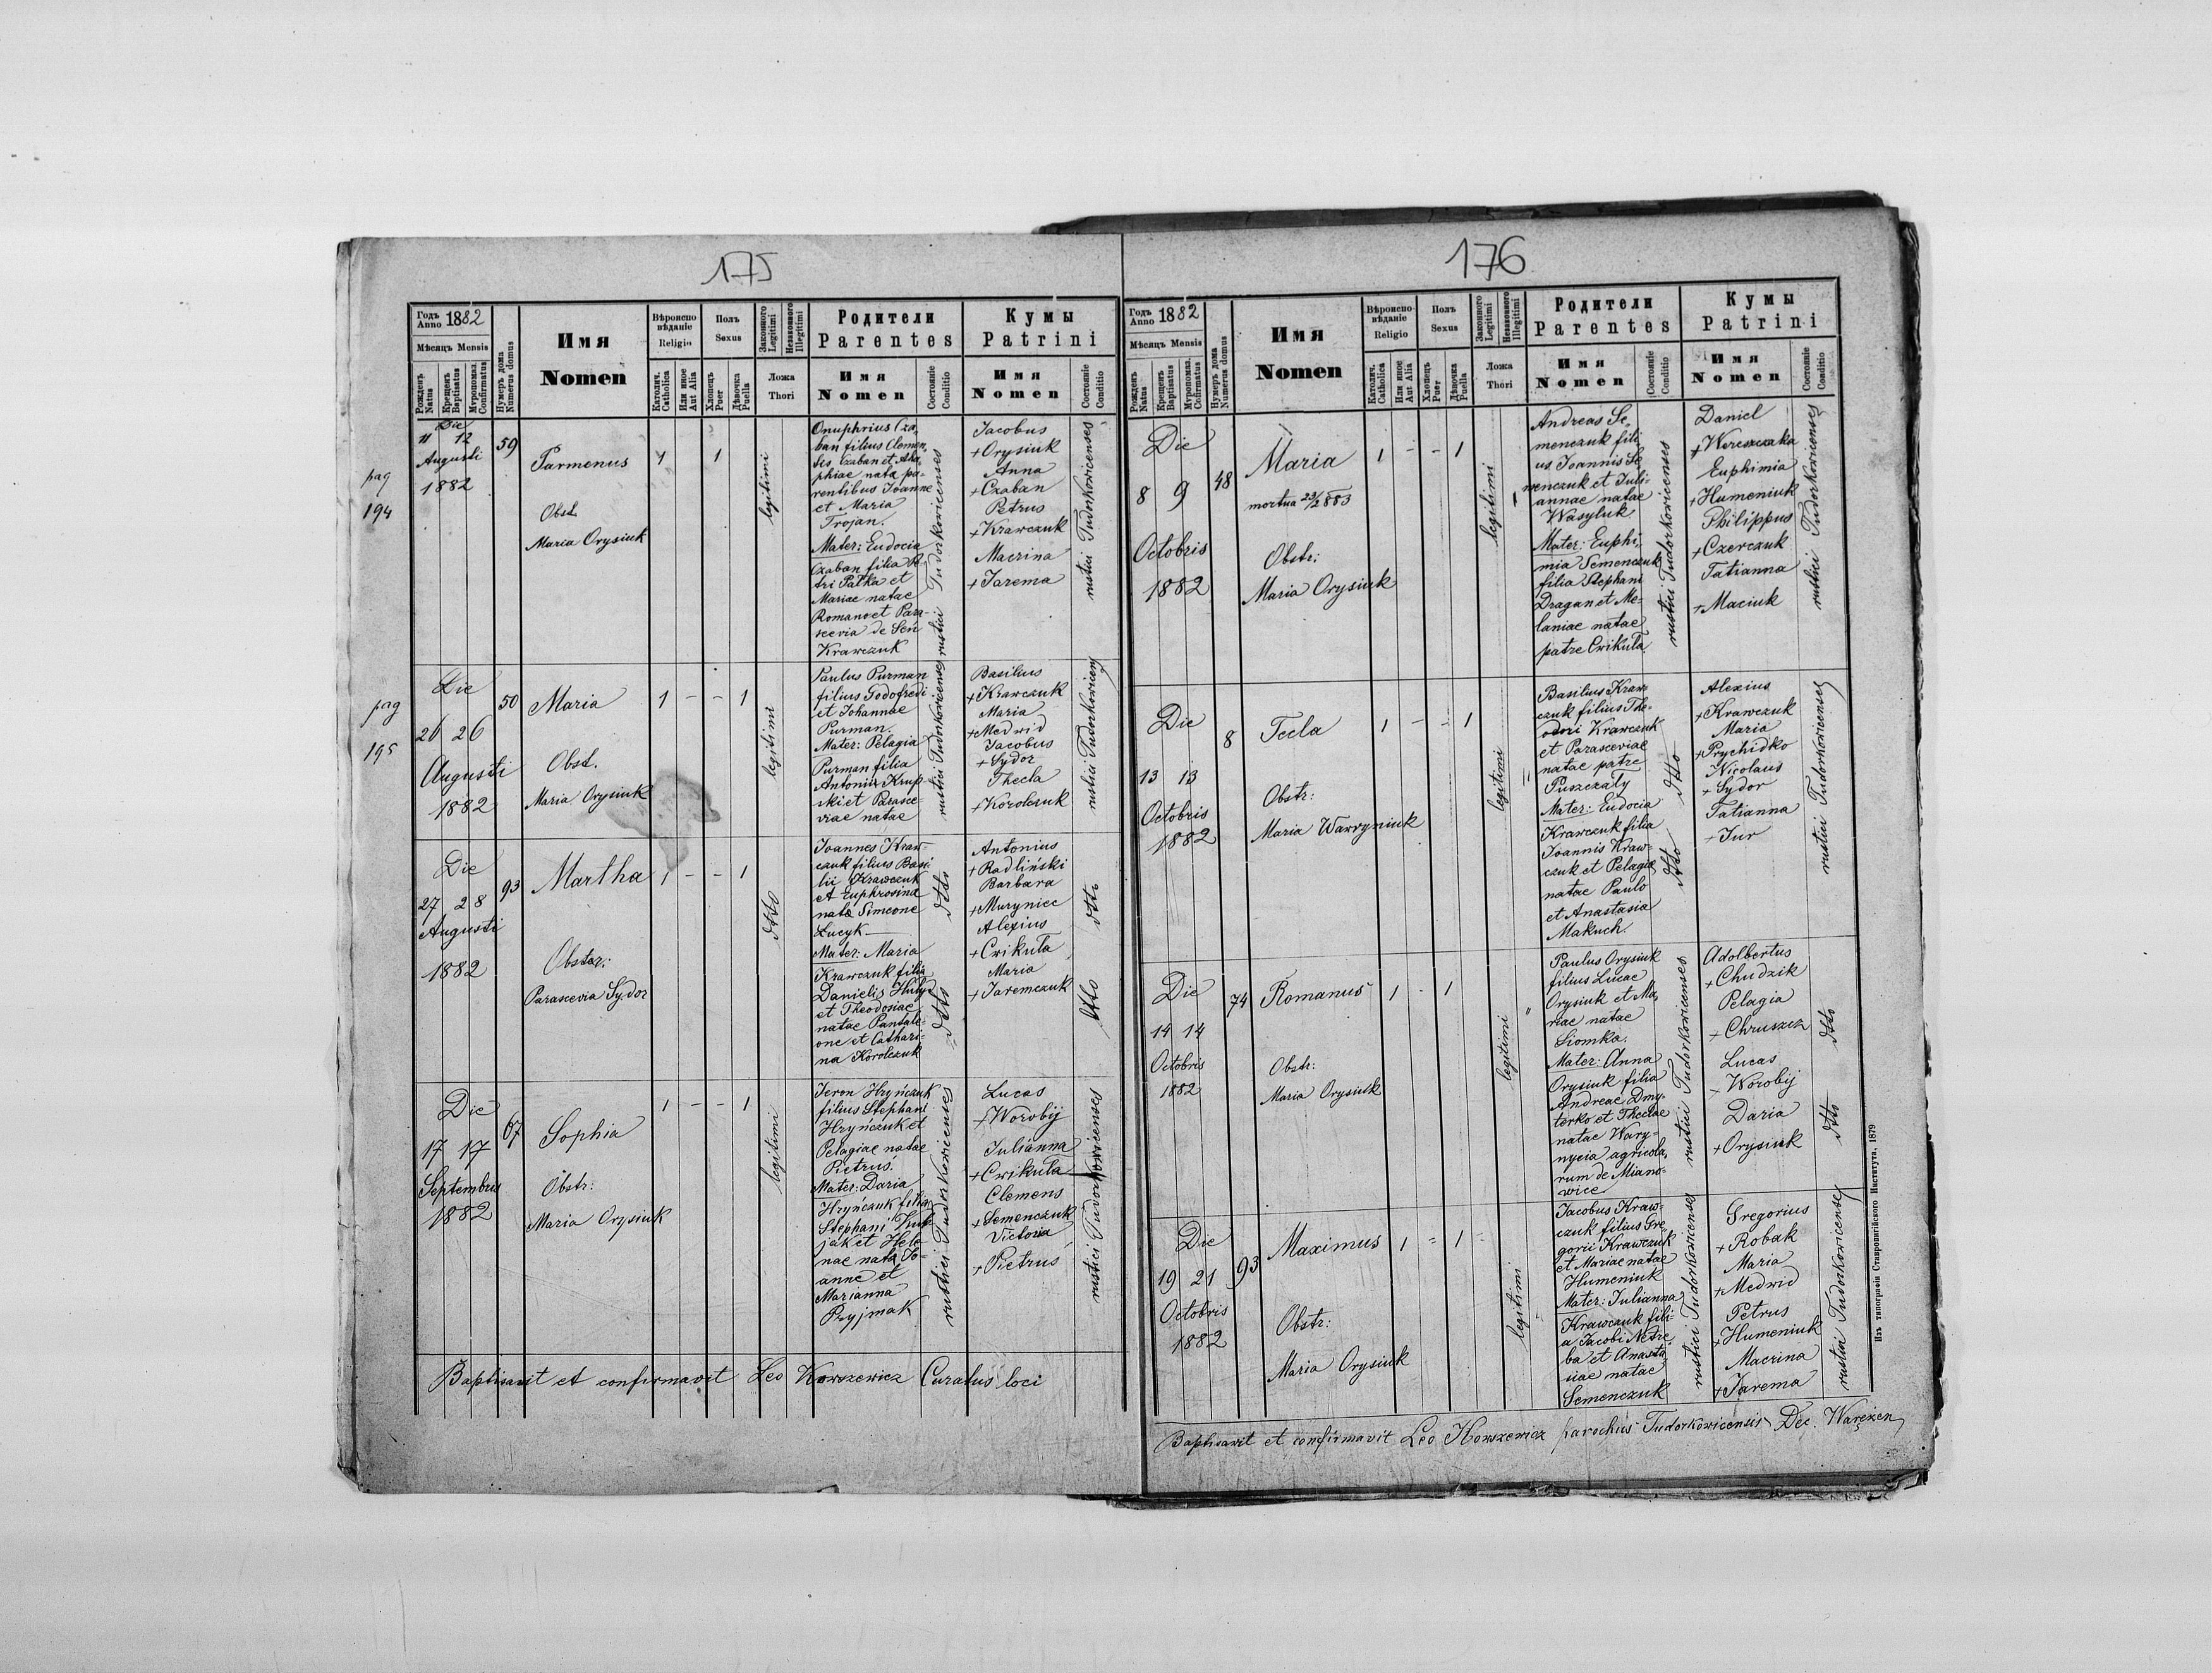 175
Годъ Anno 1882
Мѣсяцъ Mensis
Рожденъ Natus
Крещенъ Baptisatus
Мѵропомаз. Confirmatus
Нумеръ дома Numerus domus
Имя
Nomen
Вѣроисповѣданіе
Religio
Католич. Catholica
Или иное Aut Alia
Полъ
Sexus
Хлопецъ Puer
Дѣвочка Puella
Законного Legitimi
Незаконного Illegitimi
Ложа
Thori
Родители
Parentes
Имя
Nomen
Состояніе Conditio
Кумы
Patrini
Имя
Nomen
Состояніе Conditio
pag
194
Die
11 12
Augusti
1882
59
Parmenus
Obst.
Maria Orysiuk
1
1
legitimi
Onuphrius Cza
ban filius Clemen
tis Czaban et Aha
phiae nata pa-
rentibus Joanne
et Maria
Trojan.
Mater: Eudocia
Czaban filia Pe
tri Patka et
Mariae natae
Romano et Para-
scevia de Seń
Krawczuk
rustici Tudorkovicenses
Jacobus
+ Orysiuk
Anna
+ Czaban
Petrus
+ Krawczuk
Macrina
+ Jarema
rustici Tudorkovicenses
pag
195
Die
26 26
Augusti
1882
50
Maria
Obst.
Maria Orysiuk
1 - - 1
legitimi
Paulus Purman
filius Godofredi
et Johannae
Purman.
Mater: Pelagia
Purman filia
Antonii Krup
ski et Parasce-
viae natae
rustici Tudorkovicenses
Basilius
+ Krawczuk
Maria
+ Medwid
Jacobus
+ Sydor
Thecla
+ Korolczuk
rustici Tudorkovicens
Die
27 28
Augusti
1882
93
Martha
Obster:
Parascevia Sydor
1 - - 1
dtto
Joannes Kraw-
czuk filius Basi
lii Krawczuk
et Euphrosina
nata Simeone
Łucyk
Mater: Maria
Krawczuk filia
Danielis Hulyd
et Theodosiae
natae Pantale-
one et Cathari-
na Korolczuk
dtto
dtto
Antonius
+ Radliński
Barbara
+ Muryniec
Alexius
+ Cwikuła
Maria
+ Jaremczuk
dtto
dtto
Die
17 17
Septembris
1882
67
Sophia
Obstr:
Maria Orysiuk
1 - - 1
legitimi
Jeron Hryńczuk
filius Stephani
Hryńczuk et
Pelagiae natae
Pietruś.
Mater: Daria
Hryńczuk filia
Stephani Kul
jak et Hele
nae nata Jo-
anne et
Marianna
Pryjmak
rustici Tudorkovicenses
Lucas
+ Worobij
Julianna
+ Cwikuła
Clemens
+ Semenczuk
Victoria
+ Pietruś
rustici Tudorkovicenses
Baptisavit et confirmavit Leo Kowszewicz Curatus loci
176
Годъ Anno 1882
Мѣсяцъ Mensis
Рожденъ Natus
Крещенъ Baptisatus
Мѵропомаз. Cofirmatus
Нумеръ дома Numerus domus
Имя
Nomen
Вѣроисповѣданіе
Religio
Католич. Catholica
Или иное Aut Alia
Полъ
Sexus
Хлопецъ Puer
Дѣвочка Puella
Законного Legitimi
Незаконного Illegitimi
Ложа
Thori
Родители
Parentes
Имя
Nomen
Состояніе Conditio
Кумы
Patrini
Имя
Nomen
Состояніе Conditio
Die
8 9
Octobris
1882
48
Maria
mortua 23/2 883
Obstr:
Maria Orysiuk
1 - - 1
legitimi
Andreas Se
menczuk fili
us Joannis Se
menczuk et Juli-
annae natae
Wasyluk
Mater: Euphi-
mia Semenczuk
filia Stephani
Dragan et Me-
laniae natae
patre Cwikuła
rustici Tudorkovicenses
Daniel
+ Wereszczaka
Euphimia
+ Humeniuk
Philippus
+ Czerczuk
Tatianna
+ Maciuk
rustici Tudorkovicenses
Die
13 13
Octobris
1882
8
Tecla
Obstr:
Maria Wawryniuk
1 - - 1
legitimi
Basilius Kraw-
czuk filius The-
odori Krawczuk
et Parasceviae
natae patre
Puszczały
Mater: Eudocia
Krawczuk filia
Joannis Kraw-
czuk et Pelagia
natae Paulo
et Anastasia
Makuch.
dtto
dtto
Alexius
+ Krawczuk
Maria
+ Prychidko
Nicolaus
+ Sydor
Tatianna
+ Jur
rustici Tudorkovicenses
Die
14 14
Octobris
1882
74
Romanus
Obstr:
Maria Orysiuk
1 - 1
legitimi
Paulus Orysiuk
filius Lucae
Orysiuk et Ma,
riae natae
Siomka.
Mater: Anna
Orysiuk filia
Andreae Dmy
terko et Theclae
natae Wary-
nycia agricola,
rum de Miano-
wice
rustici Tudorkovicenses
Adolbertus
+ Chudzik
Pelagia
+ Chruszcz
Lucas
- Worobij
Daria
+ Orysiuk
dtto
dtto
Die
19 21
Octobris
1882
93
Maximus
Obstr:
Maria Orysiuk
1 = 1 =
legitimi
Jacobus Kraw-
czuk filius Gre
gorii Krawczuk
et Mariae natae
Humeniuk
Mater: Julianna
Krawczuk fili-
a Jacobi Netre-
ba et Anasta
siae natae
Semenczuk
rustici Tudorkovicenses
Gregorius
+ Robak
Maria
+ Medwid
Petrus
+ Humeniuk
Macrina
+ Jarema
rustici Tudorkovicenses
Baptisavit et confirmavit Leo Kowszewicz parochus Tudorkovicensis Dec. Waręzen
Изъ типографіи Ставропигійского Института. 1879